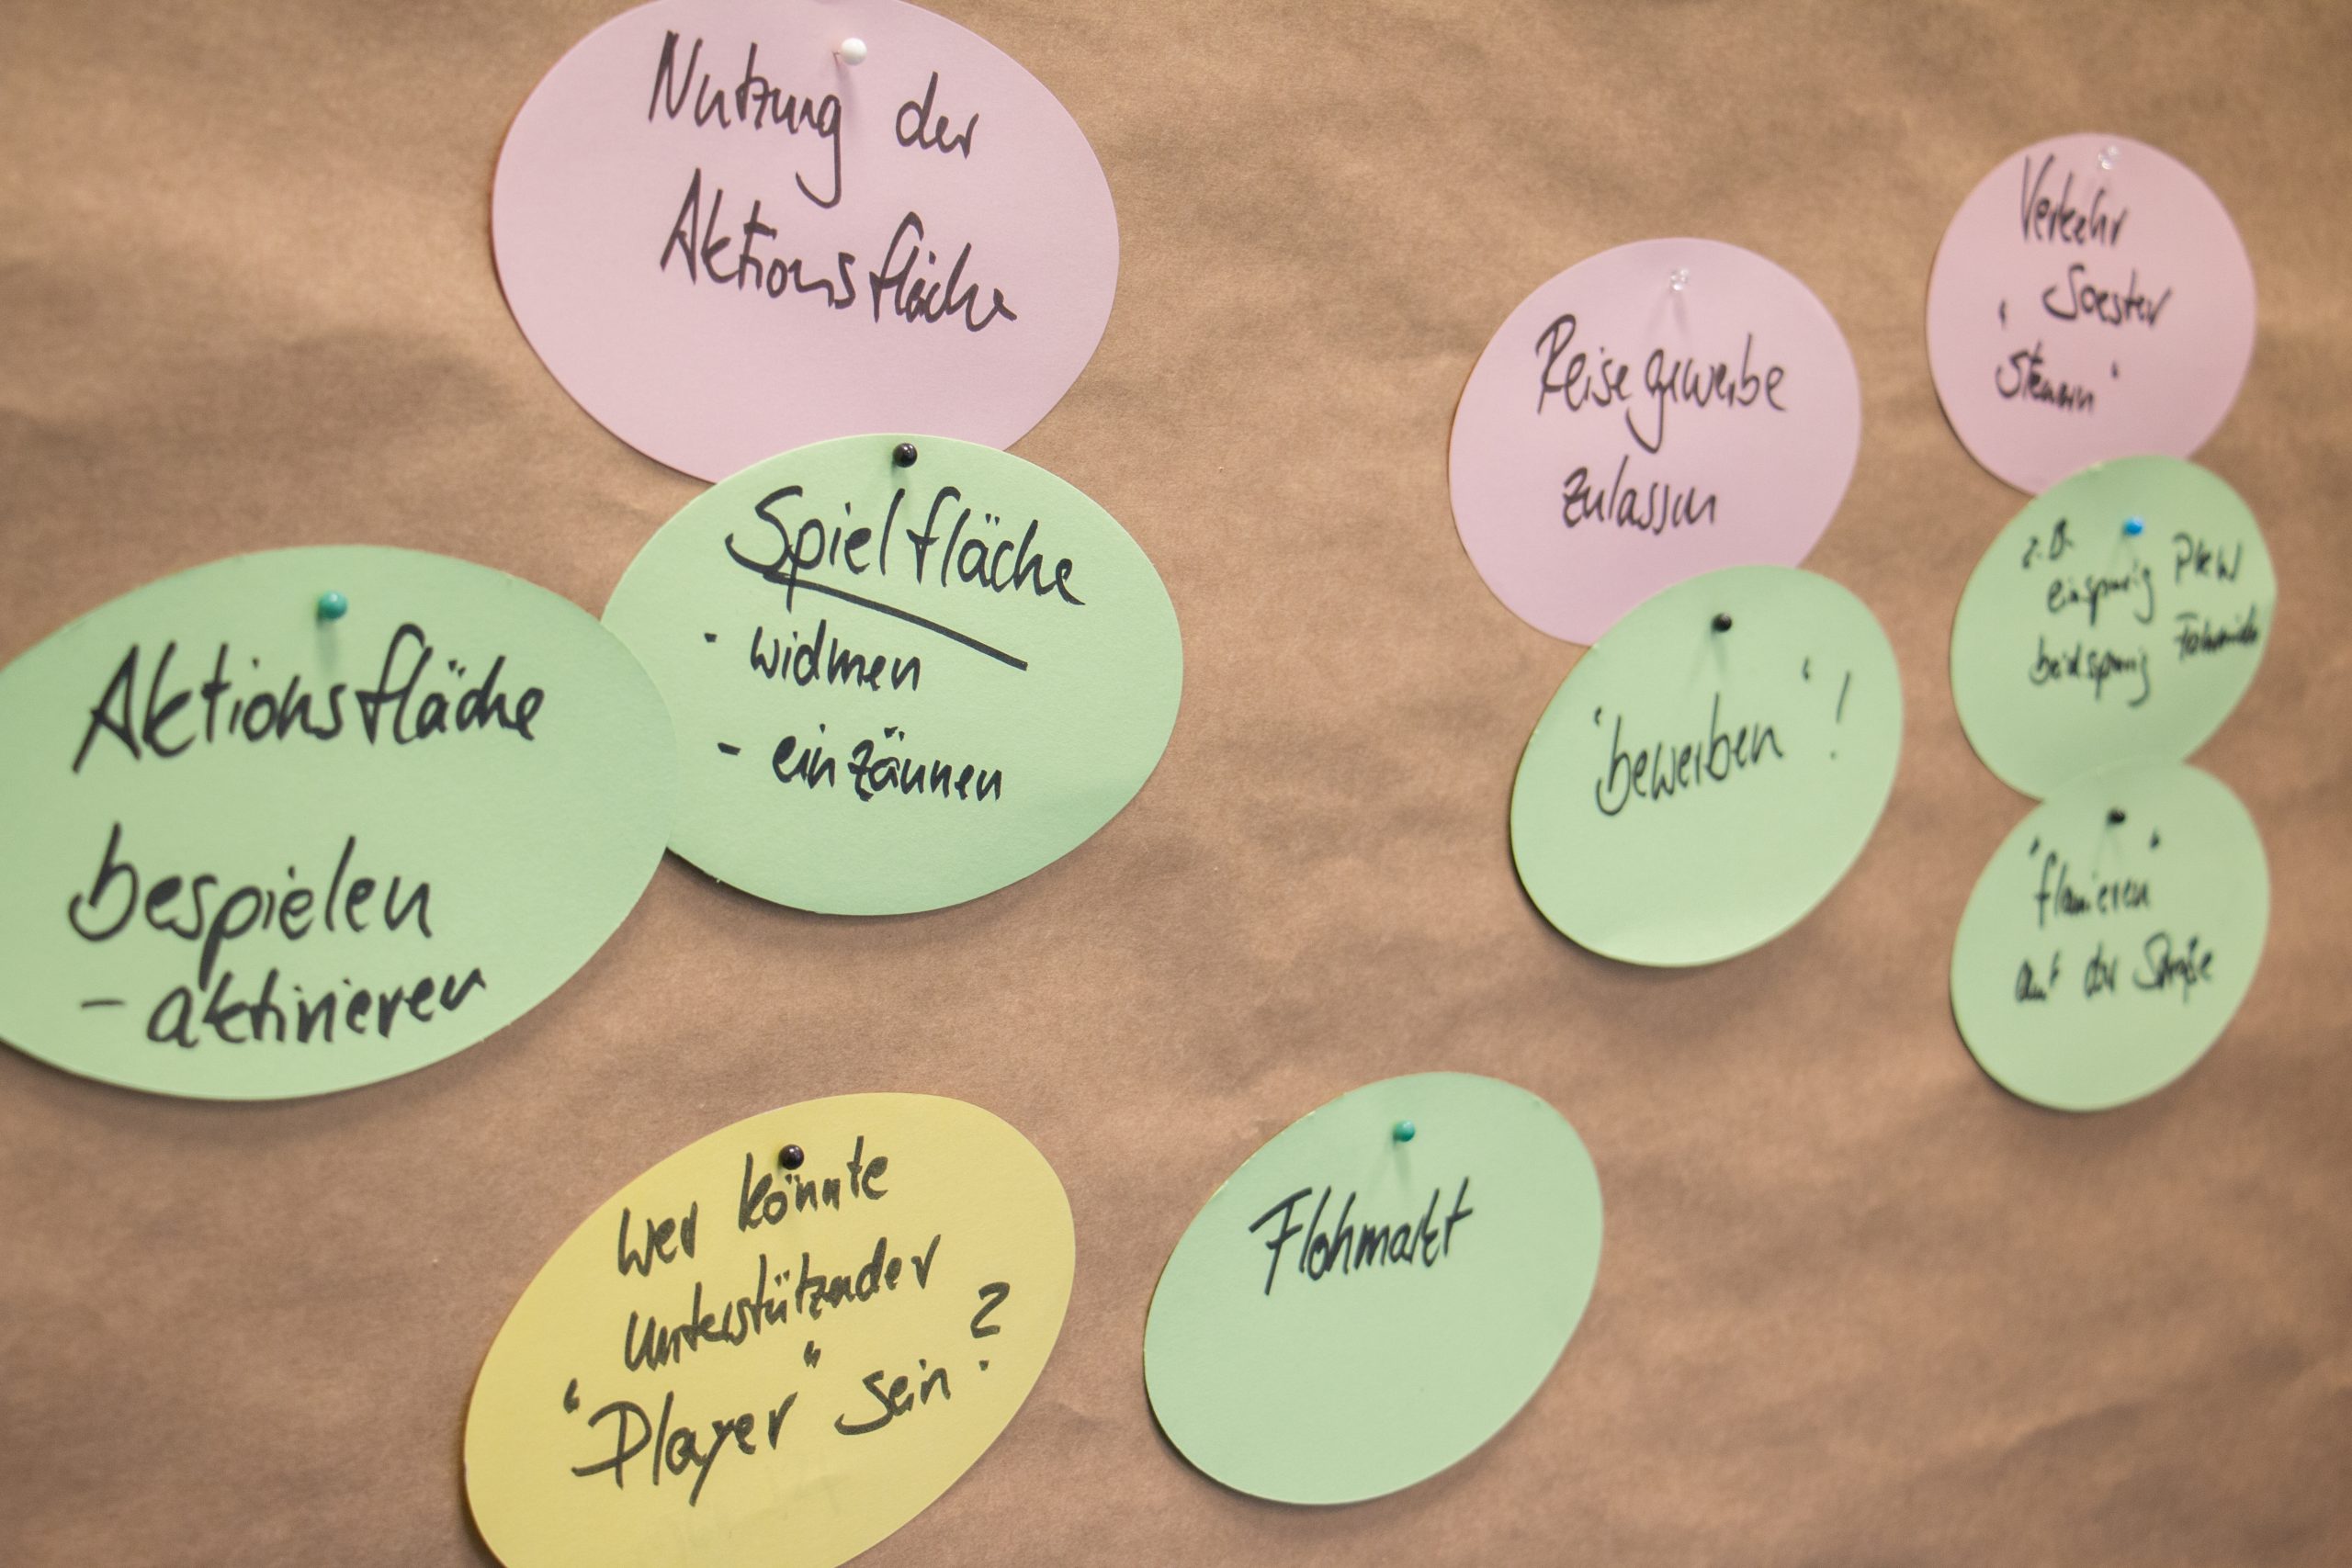 Nutzung der
Aktionsfläche
Spielfläche
- widmen
- einzäunen
Aktionsfläche
bespielen
- aktivieren
Wer könnte
unterstützender
"Player" sein?
Flohmarkt
Reisegewerbe
zulassen
"bewerben"!
Verkehr
Soester
z.B.
einspurig PKW
beidspurig
"flanieren"
auf der Straße